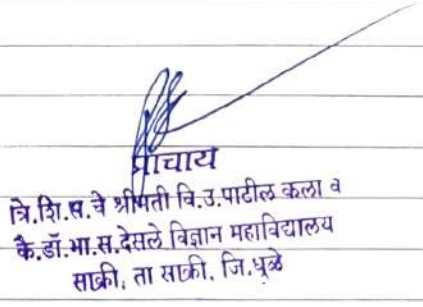 प्राचार्य
वि.शि.प्र.चे श्रीमती वि.उ.पाटील कला व
कै.डॉ.भा.स.देसले विज्ञान महाविद्यालय
साक्री, ता साक्री, जि.धुळे